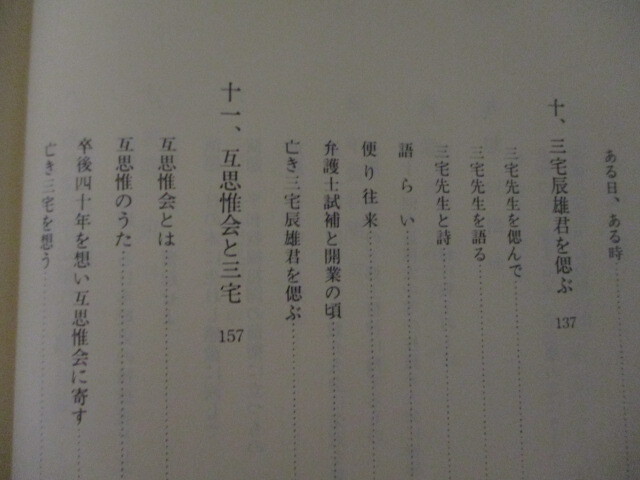 ある日、ある時
十、三宅辰雄君を偲ぶ 137
三宅先生を偲んで
三宅先生を語る
三宅先生と詩
語らい
便り往来
弁護士試補と開業の頃
亡き三宅辰雄君を偲ぶ
十一、互思惟会と三宅 157
互思惟会とは
互思惟のうた
卒後四十年を想い互思惟会に寄す
亡き三宅を想う